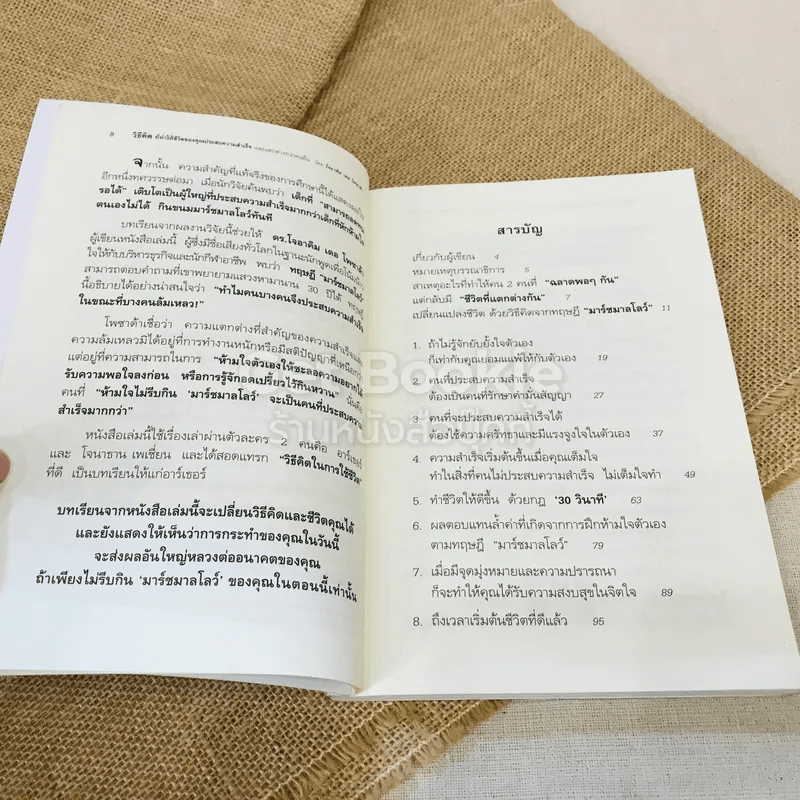 8 วิธีคิด ที่ทำให้ชีวิตของคุณประสบความสำเร็จ
จากนั้น ความสำคัญที่แท้จริงของการศึกษานี้ได้แสดง
อีกหนึ่งทศวรรษต่อมา เมื่อนักวิจัยค้นพบว่า เด็กที่ "สามารถอดทน
รอได้" เติบโตเป็นผู้ใหญ่ที่ประสบความสำเร็จมากกว่าเด็กที่หักห้ามใจ
ตนเองไม่ได้ กินขนมมาร์ชมาลโลว์ทันที
บทเรียนจากผลงานวิจัยนี้ช่วยให้ ดร.โจอาคิม เดอ โพซาด้า
ผู้เขียนหนังสือเล่มนี้ ผู้ซึ่งมีชื่อเสียงทั่วโลกในฐานะนักพูดเพื่อโน้มน้าว
ใจให้กับบริหารธุรกิจและนักกีฬาอาชีพ พบว่า ทฤษฎี "มาร์ชมาลโลว์"
สามารถตอบคำถามที่เขาพยายามแสวงหามานาน 30 ปีได้ ทฤษฎี
นี้อธิบายได้อย่างน่าสนใจว่า "ทำไมคนบางคนจึงประสบความสำเร็จ
ในขณะที่บางคนล้มเหลว!"
โพซาด้าเชื่อว่า ความแตกต่างที่สำคัญของความสำเร็จและ
ความล้มเหลวมิได้อยู่ที่การทำงานหนักหรือมีสติปัญญาที่เหนือกว่า
แต่อยู่ที่ความสามารถในการ "ห้ามใจตัวเองให้ชะลอความอยากได้
รับความพอใจลงก่อน หรือการรู้จักอดเปรี้ยวไว้กินหวาน" นั่นคือ
คนที่ "ห้ามใจไม่รีบกิน 'มาร์ชมาลโลว์' จะเป็นคนที่ประสบความ
สำเร็จมากกว่า"
หนังสือเล่มนี้ใช้เรื่องเล่าผ่านตัวละคร 2 คนคือ อาร์เธอร์
และ โจนาธาน เพเชี่ยน และได้สอดแทรก "วิธีคิดในการใช้ชีวิต"
ที่ดี เป็นบทเรียนให้แก่อาร์เธอร์
บทเรียนจากหนังสือเล่มนี้จะเปลี่ยนวิธีคิดและชีวิตคุณได้
และยังแสดงให้เห็นว่าการกระทำของคุณในวันนี้
จะส่งผลอันใหญ่หลวงต่ออนาคตของคุณ
ถ้าเพียงไม่รีบกิน 'มาร์ชมาลโลว์' ของคุณในตอนนี้เท่านั้น
สารบัญ
เกี่ยวกับผู้เขียน 4
หมายเหตุบรรณาธิการ 5
สาเหตุอะไรที่ทำให้คน 2 คนที่ "ฉลาดพอๆ กัน"
แต่กลับมี "ชีวิตที่แตกต่างกัน" 7
เปลี่ยนแปลงชีวิต ด้วยวิธีคิดจากทฤษฎี "มาร์ชมาลโลว์" 11
1. ถ้าไม่รู้จักยับยั้งใจตัวเอง
ก็เท่ากับคุณยอมแพ้ให้กับตัวเอง 19
2. คนที่ประสบความสำเร็จ
ต้องเป็นคนที่รักษาคำมั่นสัญญา 27
3. คนที่จะประสบความสำเร็จได้
ต้องใช้ความศรัทธาและมีแรงจูงใจในตัวเอง 37
4. ความสำเร็จเริ่มต้นขึ้นเมื่อคุณเต็มใจ
ทำในสิ่งที่คนไม่ประสบความสำเร็จ ไม่เต็มใจทำ 49
5. ทำชีวิตให้ดีขึ้น ด้วยกฎ '30 วินาที' 63
6. ผลตอบแทนล้ำค่าที่เกิดจากการฝึกห้ามใจตัวเอง
ตามทฤษฎี "มาร์ชมาลโลว์" 79
7. เมื่อมีจุดมุ่งหมายและความปรารถนา
ก็จะทำให้คุณได้รับความสงบสุขในจิตใจ 89
8. ถึงเวลาเริ่มต้นชีวิตที่ดีแล้ว 95